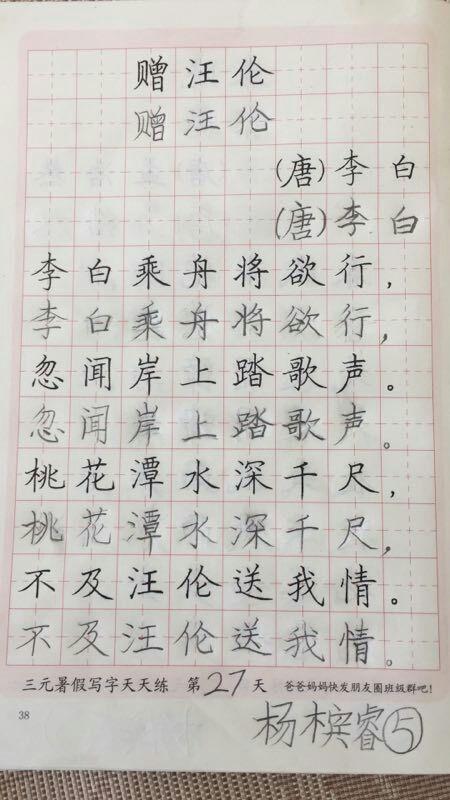 赠汪伦
赠汪伦
(唐)李白
(唐)李白
李白乘舟将欲行，
李白乘舟将欲行，
忽闻岸上踏歌声。
忽闻岸上踏歌声。
桃花潭水深千尺，
桃花潭水深千尺，
不及汪伦送我情。
不及汪伦送我情。
三元暑假写字天天练 第27天 爸爸妈妈快发朋友圈班级群吧！
38
杨槟睿⑤